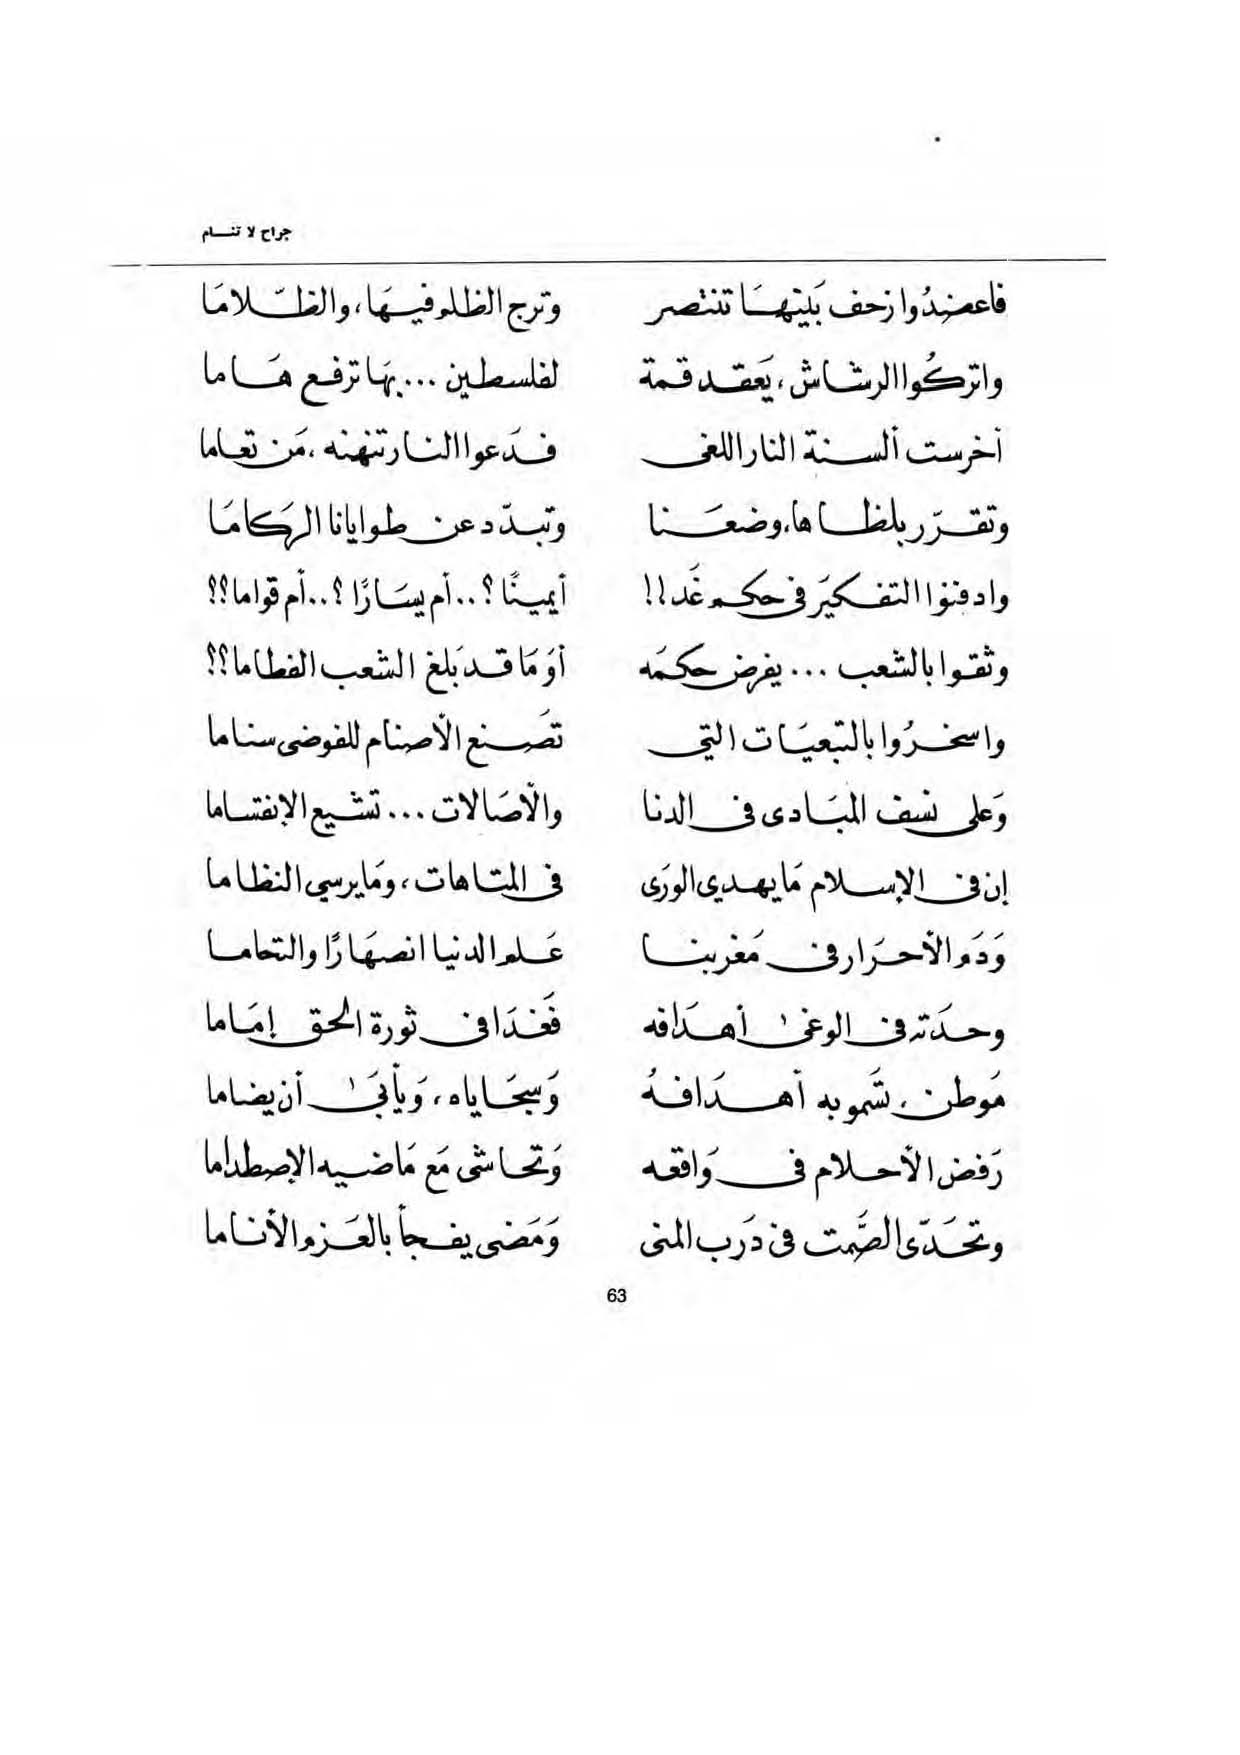 جراح لا تنـــام
فاعضِدُوا زحف بَنِيهَا تنتصر وترج الظلم فيهَا، والظلّامَا
واتركُوا الرشاش، يَعقد قمة لفلسطين ... بهَا ترفع هَاما
أخرست ألسنة النار اللغى فدَعوا النار تنهنه، مَن تعَاما
وتقرّر بلظاها، وضعَنا وتبدّد عن طوايانا الركَامَا
وادفنوا التفكيرَ في حكم غَد!! أيمينًا؟.. أم يسَارًا؟.. أم قواما؟؟
وثقوا بالشعب ... يفرض حكمَه أوَ مَا قد بَلغ الشعب الفطاما؟؟
واسخرُوا بالتبعيَات التي تصَنع الأصنام للفوضى سناما
وَعلى نسف المبَادى في الدنا والأصَالات ... تشيع الإنقساما
إن في الإسلام مَا يهدي الورَى في المتاهات، ومَا يرسي النظاما
وَدَم الأحرَار في مَغربنا عَلم الدنيا انصهَارًا والتحاما
وحدَته في الوغى أهدَافه فَغدَا في ثورة الحق إمَاما
مَوطن، تسَمو به أهدَافهُ وَسجَاياه، وَيأبَى أن يضاما
رَفض الأحلام في وَاقعه وَتحاشى مَع مَاضيه الإصطداما
وتحَدّى الصَّمت في دَرب المنى وَمَضى يفجأ بالعَزم الأنَاما
63